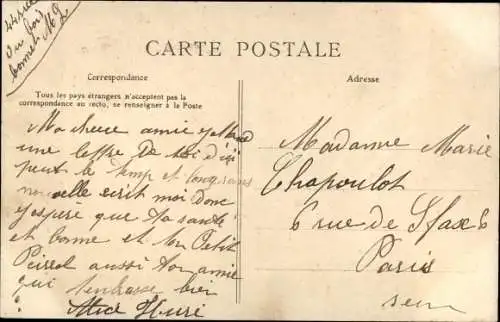 44 rue
du Boi
bonnes M G
CARTE POSTALE
Correspondance
Tous les pays étrangers n'acceptent pas la
correspondance au recto, se renseigner à la Poste
Adresse
Ma cheux amie
une lettre De toi d'i
peut le temp et long sans
elle ecrit moi donc
j'espère que ta santé
et bonne et ton Petit
aussi ton amie
qui t'enbrasse bien
Alice
Madame Marie
Chapoulot
6 rue de Sfax 6
Paris
sein